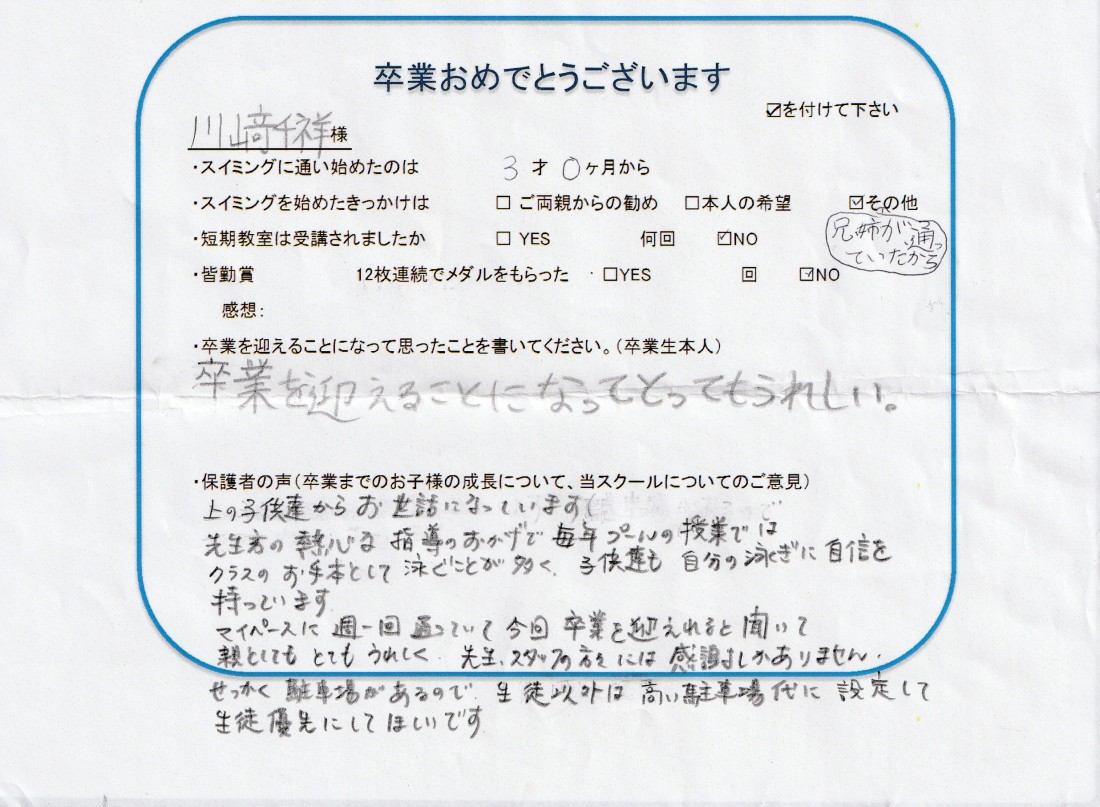 卒業おめでとうございます
☑を付けて下さい
川﨑千祥様
・スイミングに通い始めたのは 3才 0ヶ月から
・スイミングを始めたきっかけは □ ご両親からの勧め □本人の希望 ☑その他
兄姉が通っ
ていたから
・短期教室は受講されましたか □ YES 何回 ☑NO
・皆勤賞 12枚連続でメダルをもらった ・□YES 回 ☑NO
感想:
・卒業を迎えることになって思ったことを書いてください。(卒業生本人)
卒業を迎えることになってとってもうれしい。
・保護者の声(卒業までのお子様の成長について、当スクールについてのご意見)
上の子供達からお世話になっています
先生方の熱心な指導のおかげで毎年プールの授業では
クラスのお手本として泳ぐことが多く、子供達も自分の泳ぎに自信を
持っています
マイペースに週一回通っていて今回卒業を迎えれると聞いて
親としてもとてもうれしく、先生、スタッフの方々には感謝しかありません。
せっかく駐車場があるので、生徒以外は高い駐車場代に設定して
生徒優先にしてほしいです